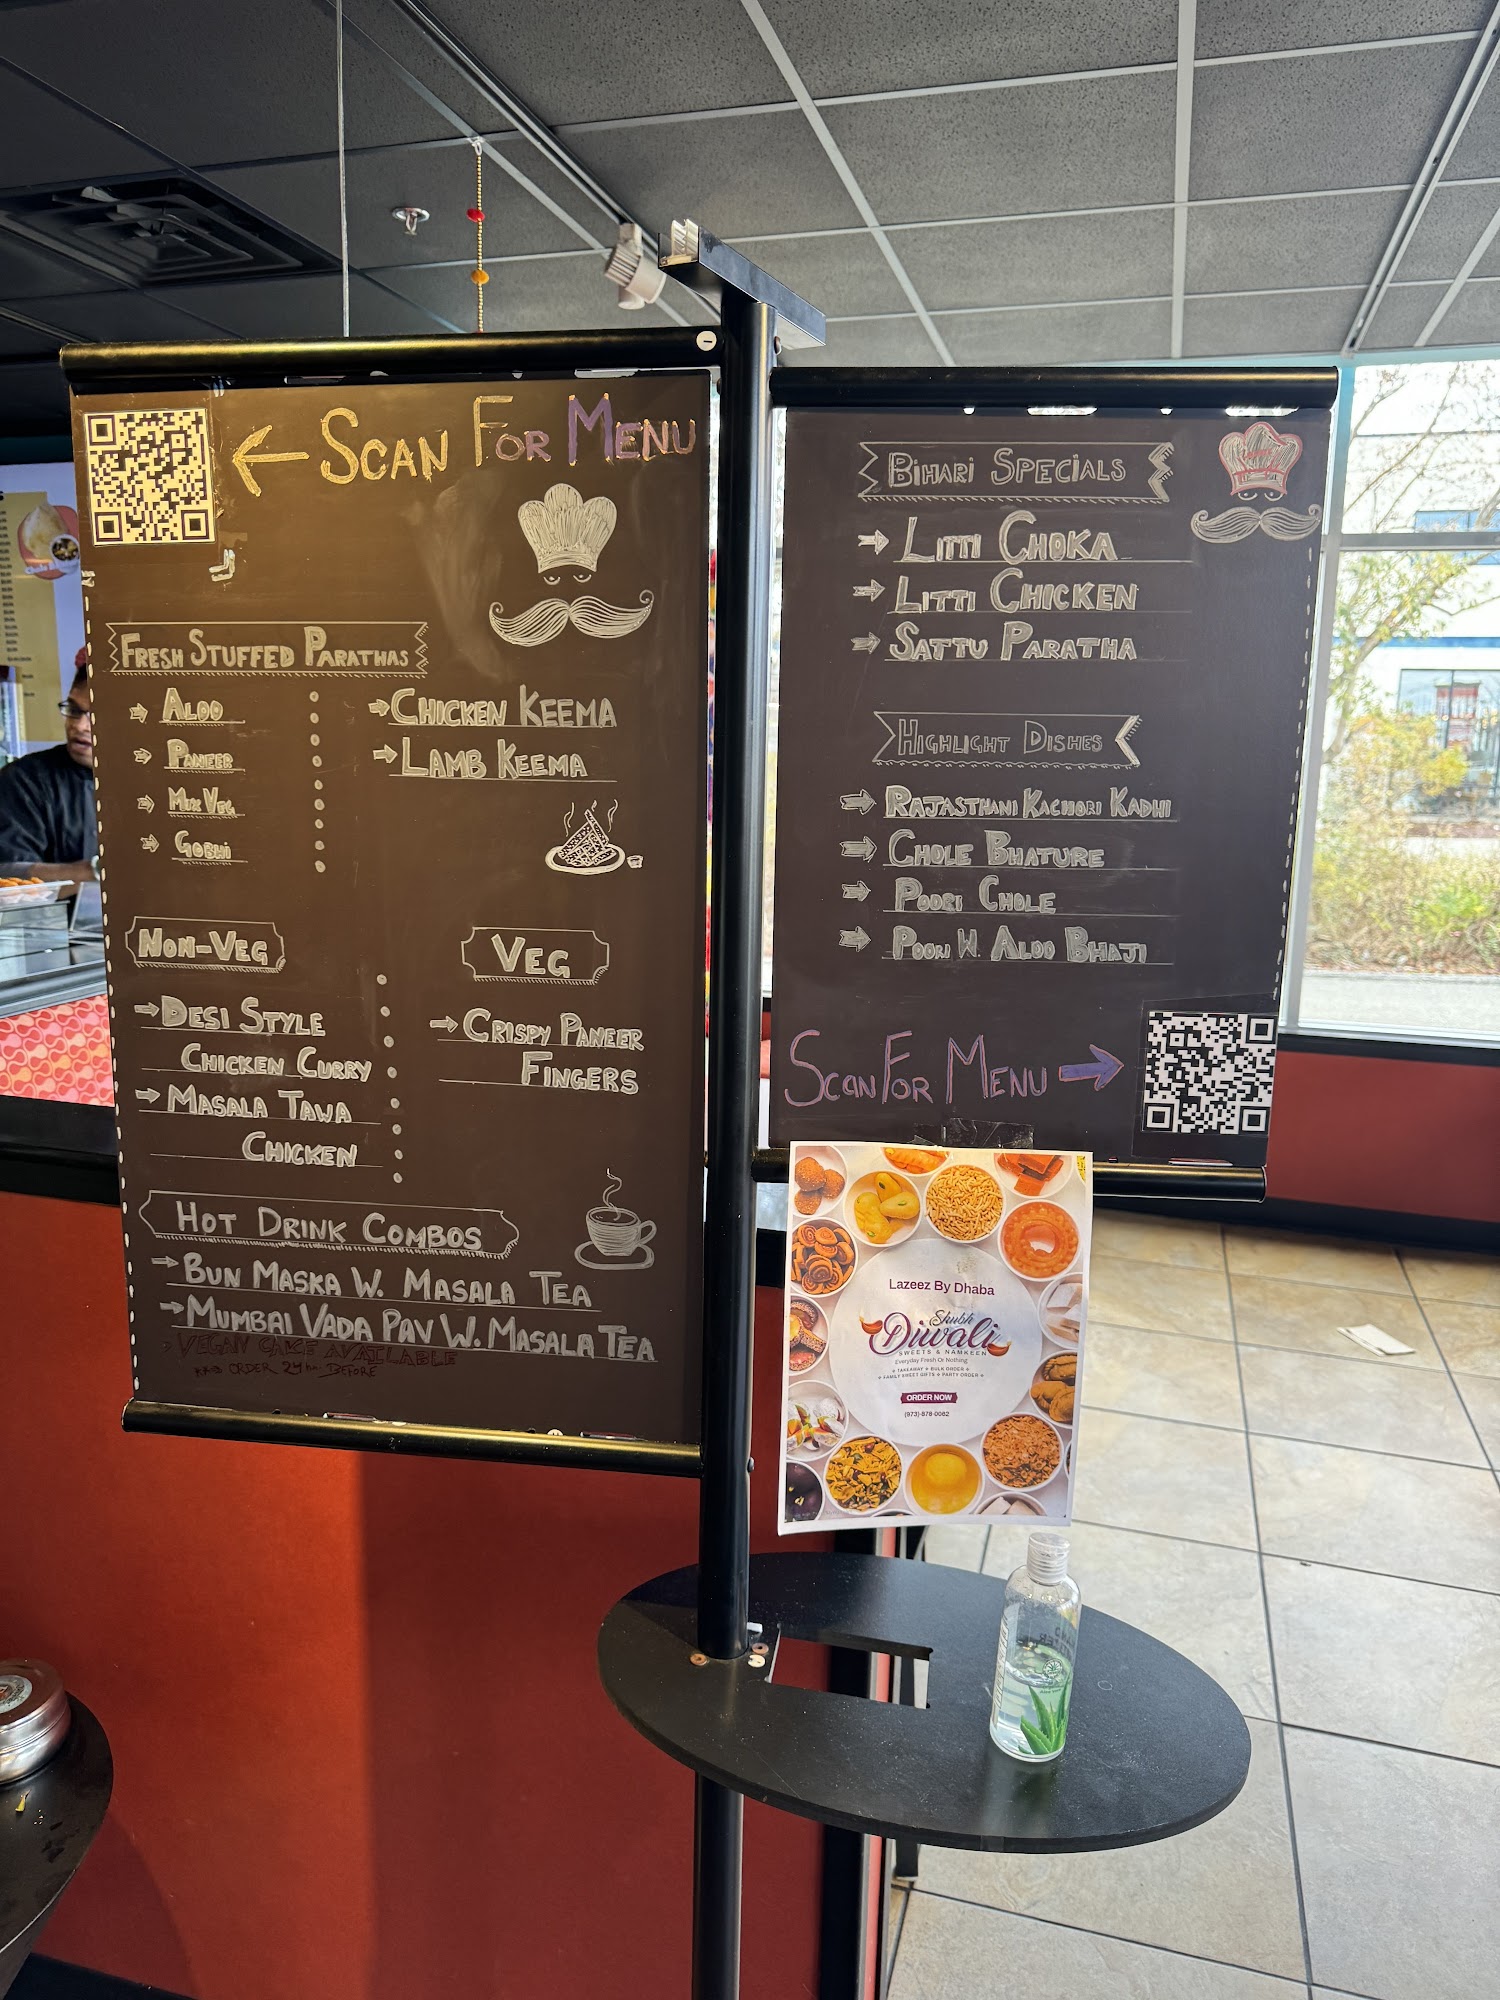 ← Scan For Menu
Fresh Stuffed Parathas
→ Aloo
→ Paneer
→ Mix Veg
→ Gobhi
→ Chicken Keema
→ Lamb Keema
Non-Veg
→ Desi Style
Chicken Curry
→ Masala Tawa
Chicken
Veg
→ Crispy Paneer
Fingers
Hot Drink Combos
→ Bun Maska W. Masala Tea
→ Mumbai Vada Pav W. Masala Tea
Vegan Cake Available
Order 24 hr. Before
Bihari Specials
→ Litti Choka
→ Litti Chicken
→ Sattu Paratha
Highlight Dishes
→ Rajasthani Kachori Kadhi
→ Chole Bhature
→ Poori Chole
→ Poori W. Aloo Bhaji
Scan For Menu →
Lazeez By Dhaba
Shubh
Diwali
SWEETS & NAMKEEN
Everyday Fresh Or Nothing
TAKEAWAY BULK ORDER
FAMILY SWEET GIFTS PARTY ORDER
ORDER NOW
(973)-878-0082